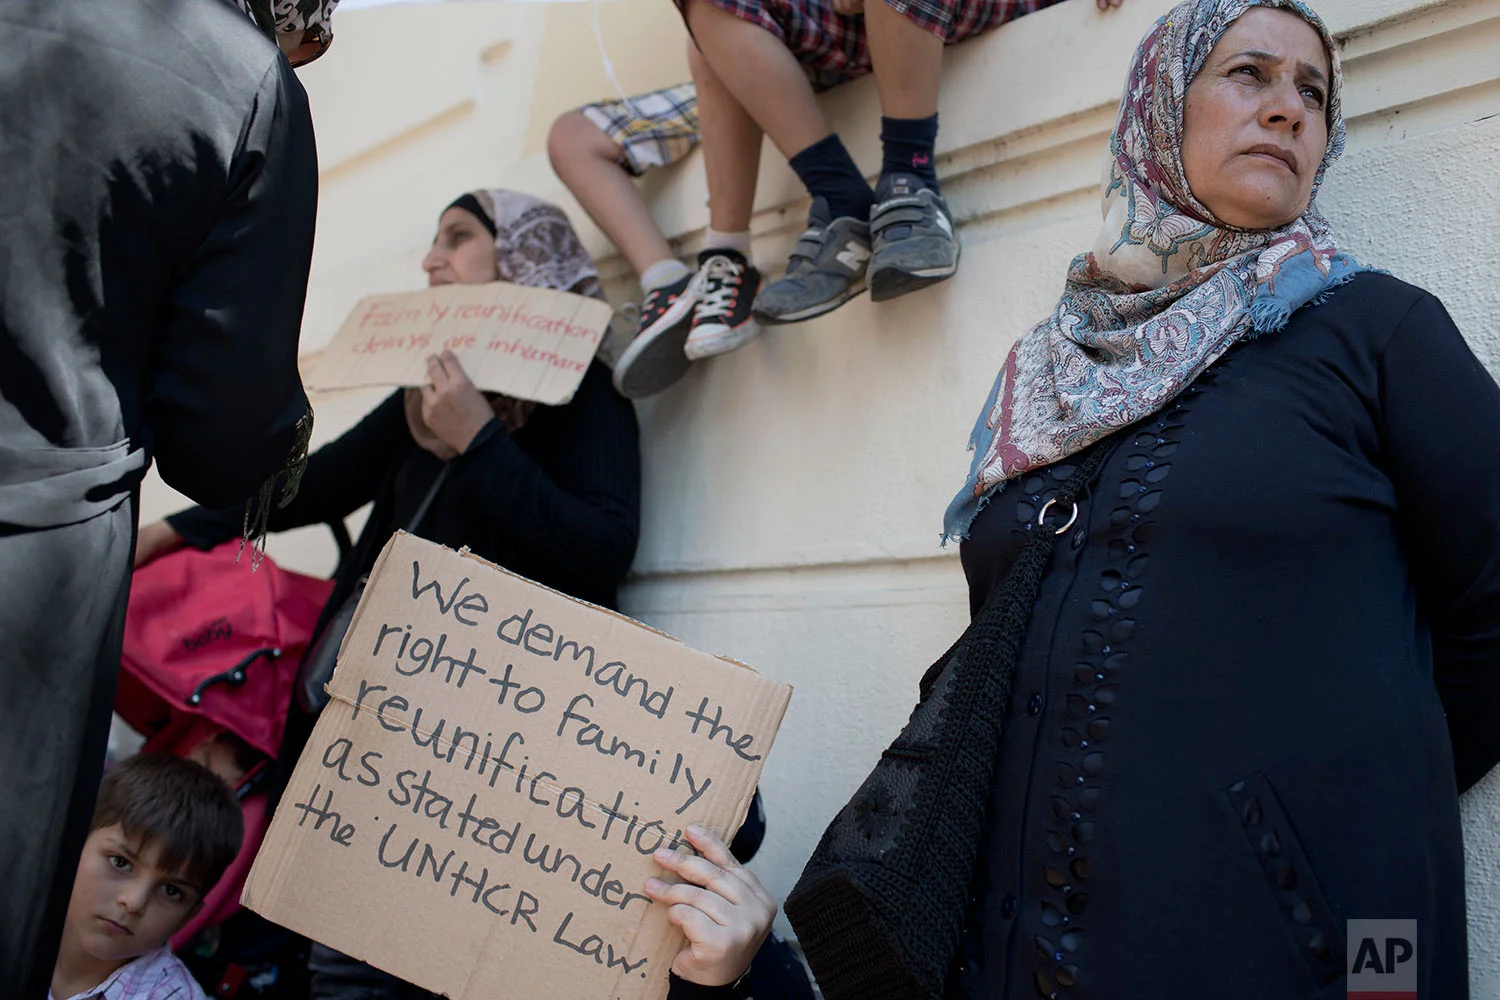 Family reunification
delays are inhumane
We demand the
right to family
reunification
as stated under
the UNHCR Law.
baby
N
AP